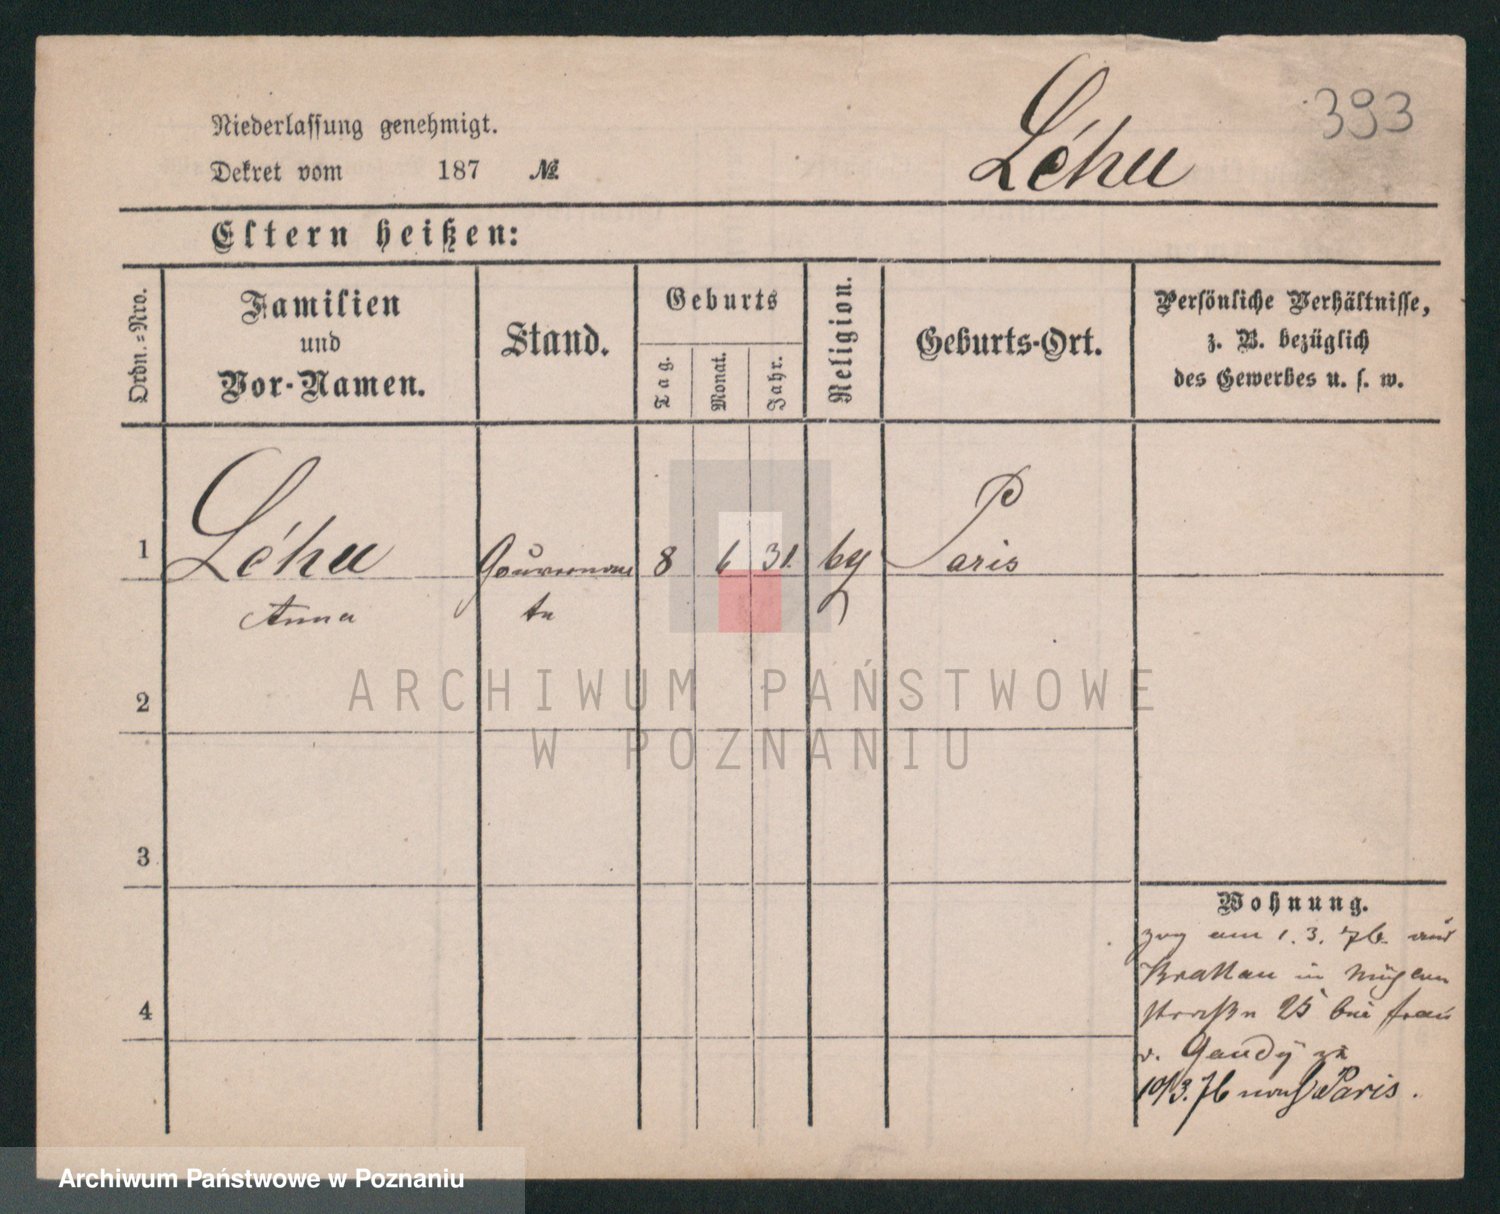 393
Léhu
Niederlassung genehmigt.
Dekret vom 187 №
Eltern heißen:
Ordn.=Nro.
Familien
und
Vor-Namen.
Stand.
Geburts
Tag.
Monat.
Jahr.
Religion.
Geburts-Ort.
Persönliche Verhältnisse,
z. B. bezüglich
des Gewerbes u. s. w.
1 Léhu 8 6 31. Paris
Anna
2
ARCHIWUM PAŃSTWOWE
W POZNANIU
3
4
Wohnung.
zog am 1. 3. 76. aus
in
25 bei Frau
v. Gaudÿ zu
10/3. 76 nach Paris.
Archiwum Państwowe w Poznaniu